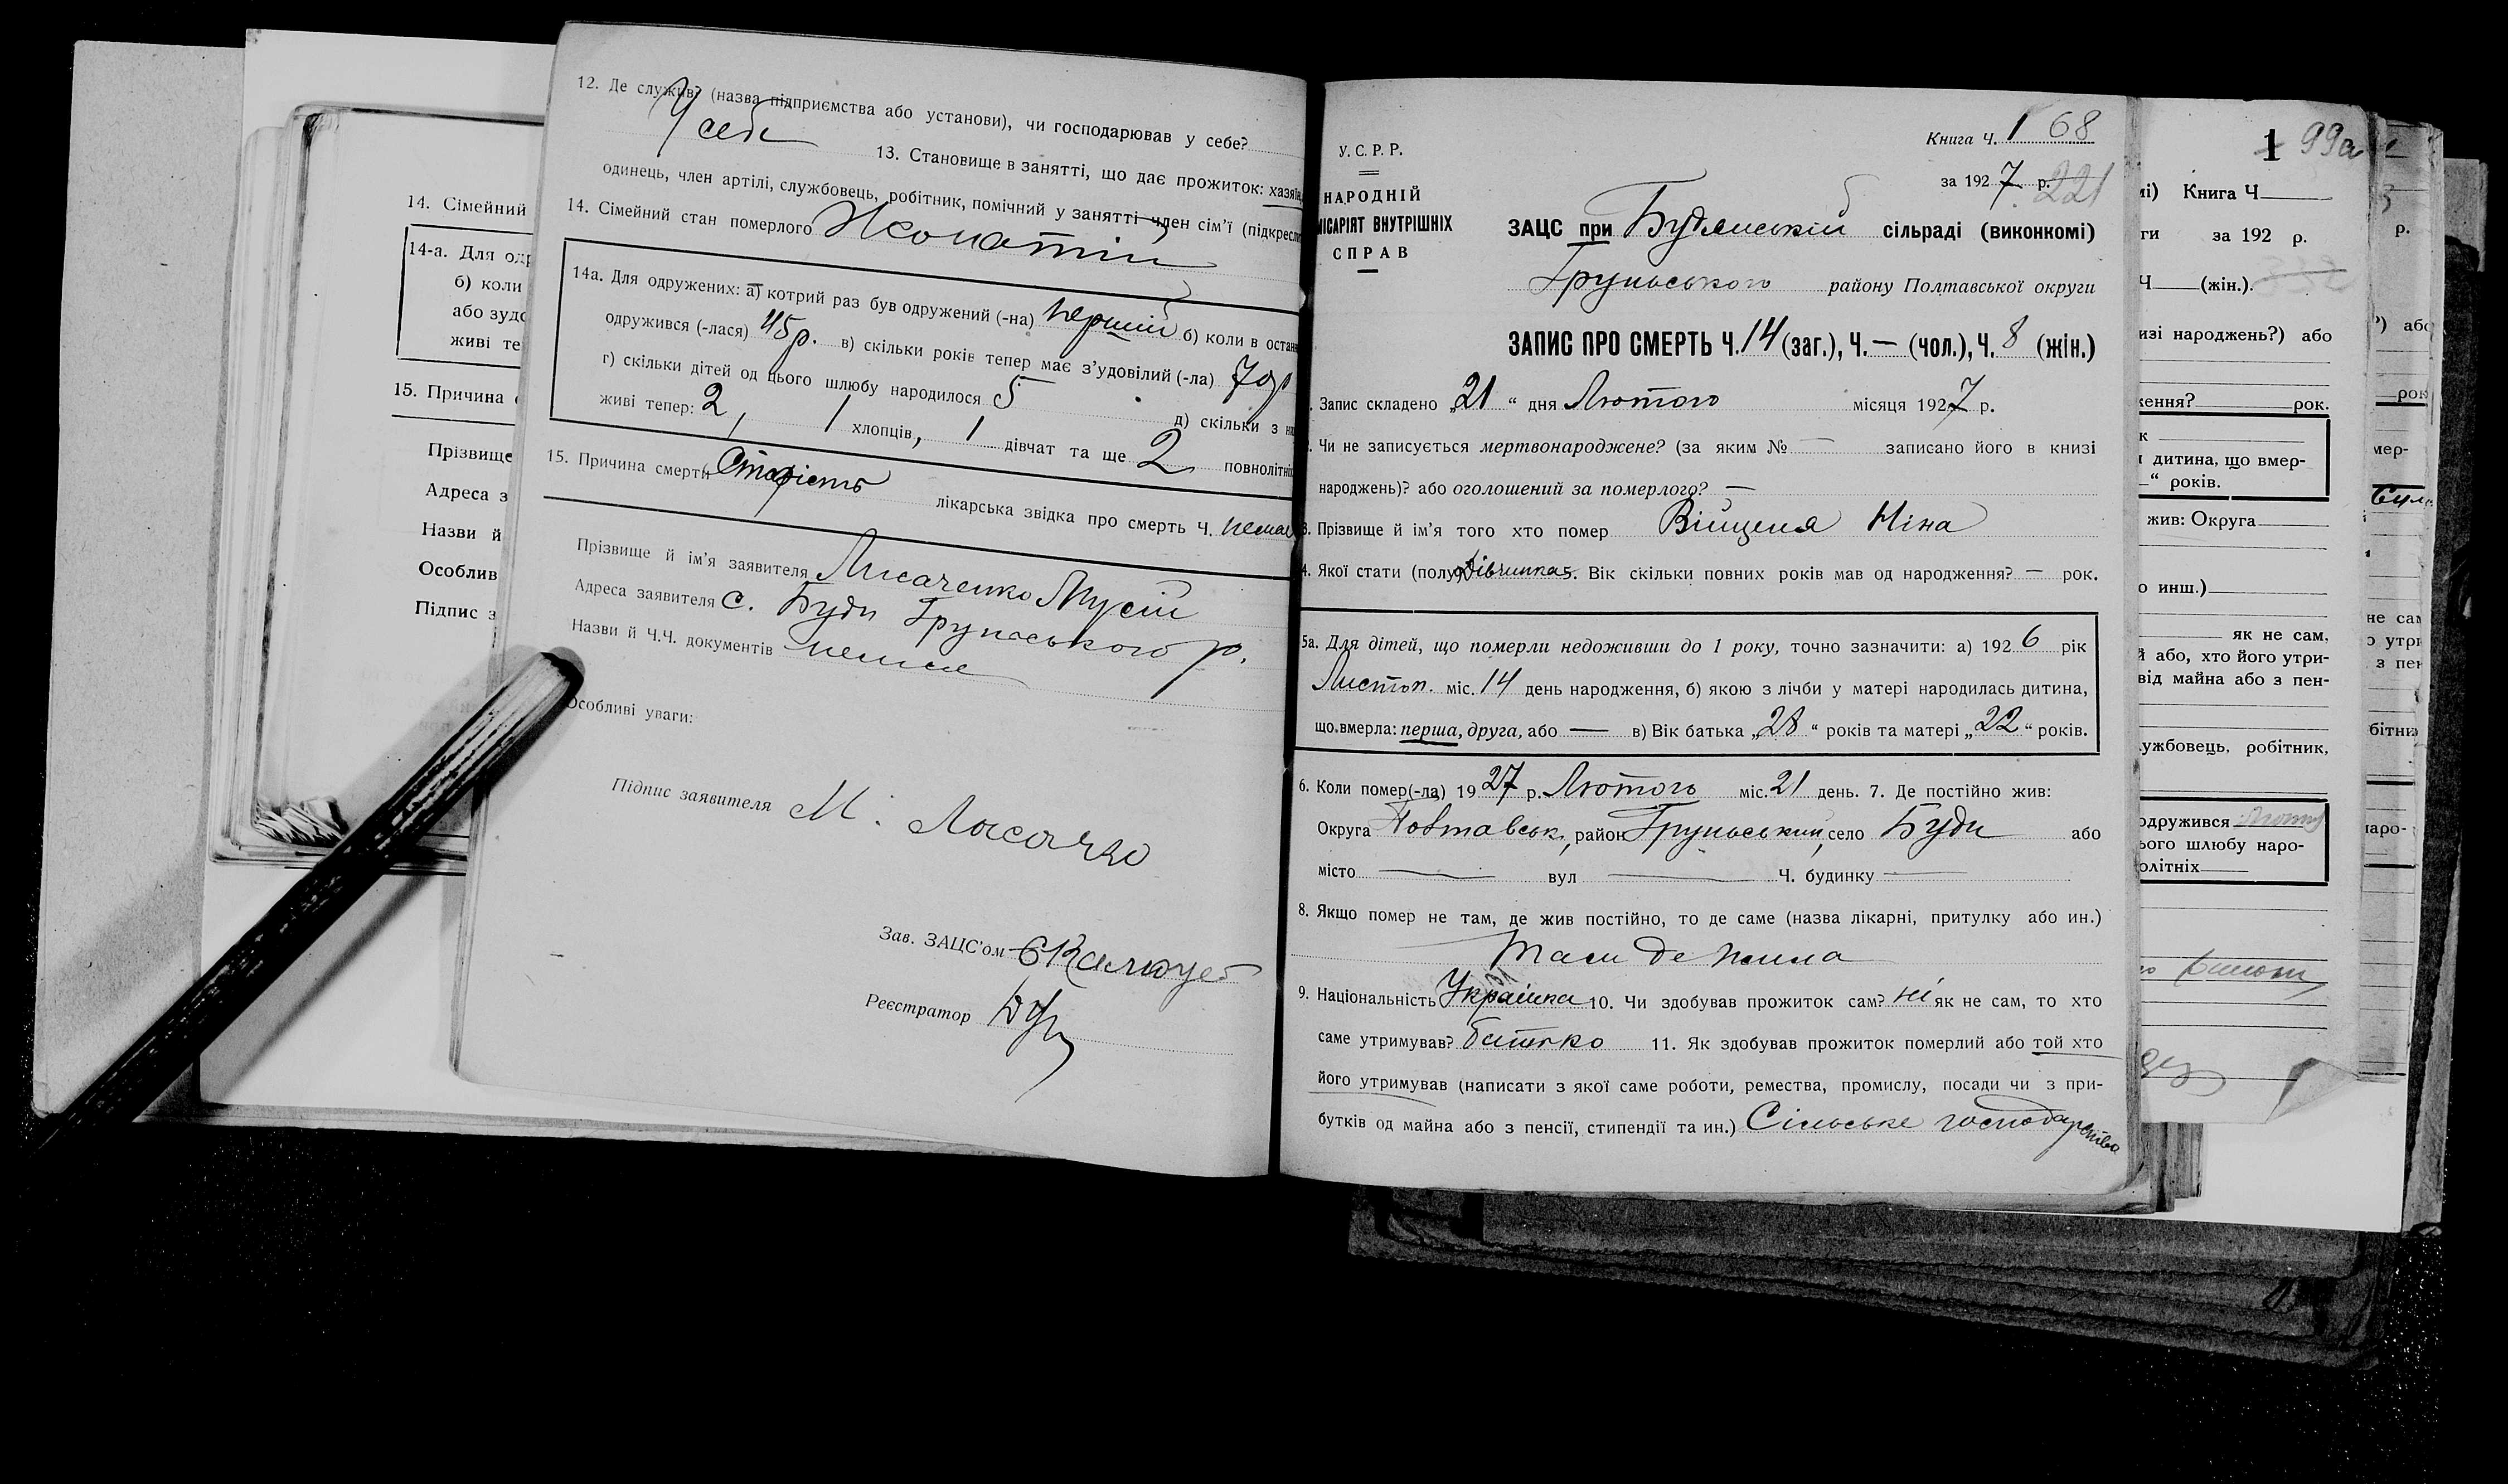 12. Де служив? (назва підприємства або установи), чи господарював у себе?
У себе 13. Становище в занятті, що дає прожиток: хазяїн,
одинець, член артілі, службовець, робітник, помічний у занятті член сім'ї (підкресли
14. Сімейний стан померлого Жонатий
14а. Для одружених: а) котрий раз був одружений (-на) перший б) коли в остан
одружився (-лася) 45 р. в) скільки років тепер має з'удовілий (-ла) 70 р
г) скільки дітей од цього шлюбу народилося 5 д) скільки з них
живі тепер: 2, 1 хлопців, 1 дівчат та ще 2 повнолітніх
15. Причина смерти Старість лікарська звідка про смерть Ч. немає
Прізвище й ім'я заявителя Лисаченко Мусій
Адреса заявителя с. Буди Груньського р.
Назви й Ч.Ч. документів немає
Особливі уваги:
Підпис заявителя М.
Зав. ЗАЦС'ом
Реєстратор
14. Сімейний
14-а. Для одр
б) коли
або зудо
живі те
15. Причина
Прізвище
Адреса з
Назви й
Особлив
Підпис з
Книга Ч. 1 68
У.С.Р.Р.
за 1927 р. 221
НАРОДНІЙ
МІСАРІЯТ ВНУТРІШНІХ
СПРАВ
ЗАЦС при Будянській сільраді (виконкомі)
Груньського району Полтавської округи
ЗАПИС ПРО СМЕРТЬ Ч. 14 (заг.), Ч. — (чол.), Ч. 8 (жін.)
Запис складено „21“ дня Лютого місяця 1927 р.
Чи не записується мертвонароджене? (за яким № — записано його в книзі
народжень)? або оголошений за померлого? —
3. Прізвище й ім'я того хто помер Ніна
4. Якої стати (полу)? дівчинка 5. Вік скільки повних років мав од народження? — рок.
5а. Для дітей, що померли недоживши до 1 року, точно зазначити: а) 1926 рік
Листоп. міс. 14 день народження, б) якою з лічби у матері народилась дитина,
що вмерла: перша, друга, або — в) Вік батька „28“ років та матері „22“ років.
6. Коли помер(-ла) 1927 р. Лютого міс. 21 день. 7. Де постійно жив:
Округа Повтавськ, район Груньський, село Буди або
місто — вул — Ч. будинку —
8. Якщо помер не там, де жив постійно, то де саме (назва лікарні, притулку або ин.)
Там де жила
9. Національність Українка 10. Чи здобував прожиток сам? ні як не сам, то хто
саме утримував? батько 11. Як здобував прожиток померлий або той хто
його утримував (написати з якої саме роботи, ремества, промислу, посади чи з при-
бутків од майна або з пенсії, стипендії та ин.) Сільське господарство
1 99а
мі) Книга Ч
ги за 192 р.
Ч (жін.).
изі народжень?) або
ження? рок.
к
дитина, що вмер-
“ років.
жив: Округа
о инш.)
як не сам,
й або, хто його утри-
від майна або з пен-
ужбовець, робітник,
одружився
ього шлюбу наро-
олітніх